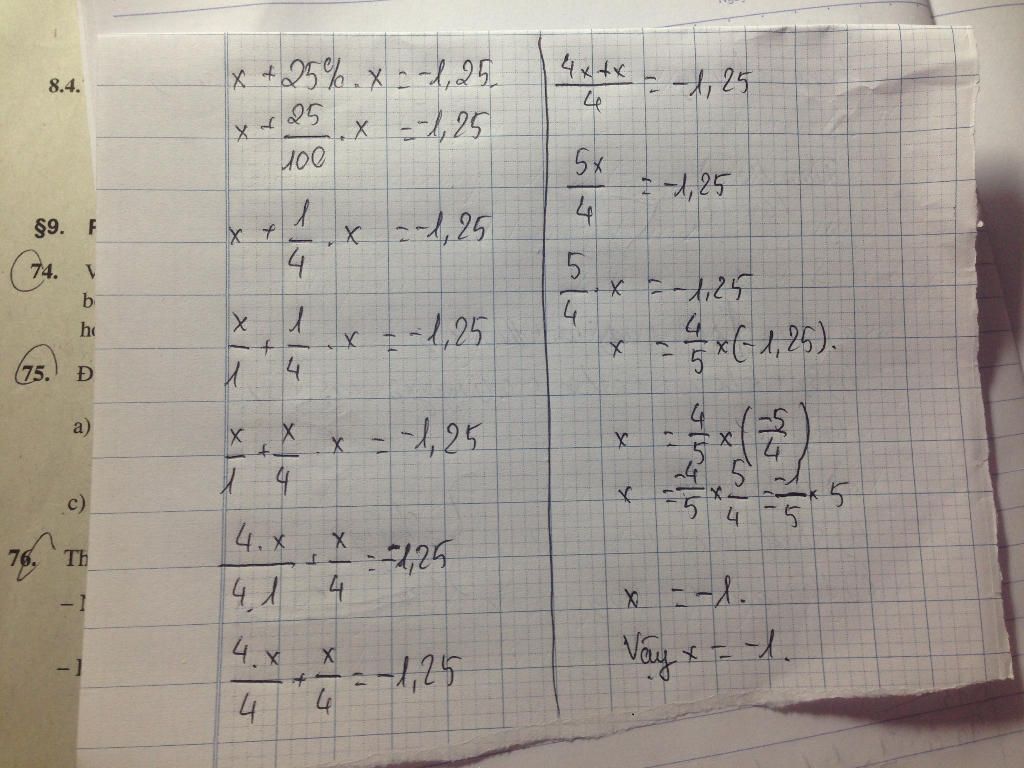 8.4.
§9.
74.
b
ho
75. Đ
a)
c)
76. Th
x + 25% . x = -1,25.
x + 25/100 . x = -1,25
x + 1/4 . x = -1,25
x/1 + 1/4 . x = -1,25
x/1 + x/4 . x = -1,25
4.x/4.1 + x/4 = -1,25
4.x/4 + x/4 = -1,25
4x+x/4 = -1,25
5x/4 = -1,25
5/4 . x = -1,25
x = 4/5 x (-1,25).
x = 4/5 x (-5/4)
x = -4/5 x 5/4 = -1/5 x 5
x = -1.
Vậy x = -1.